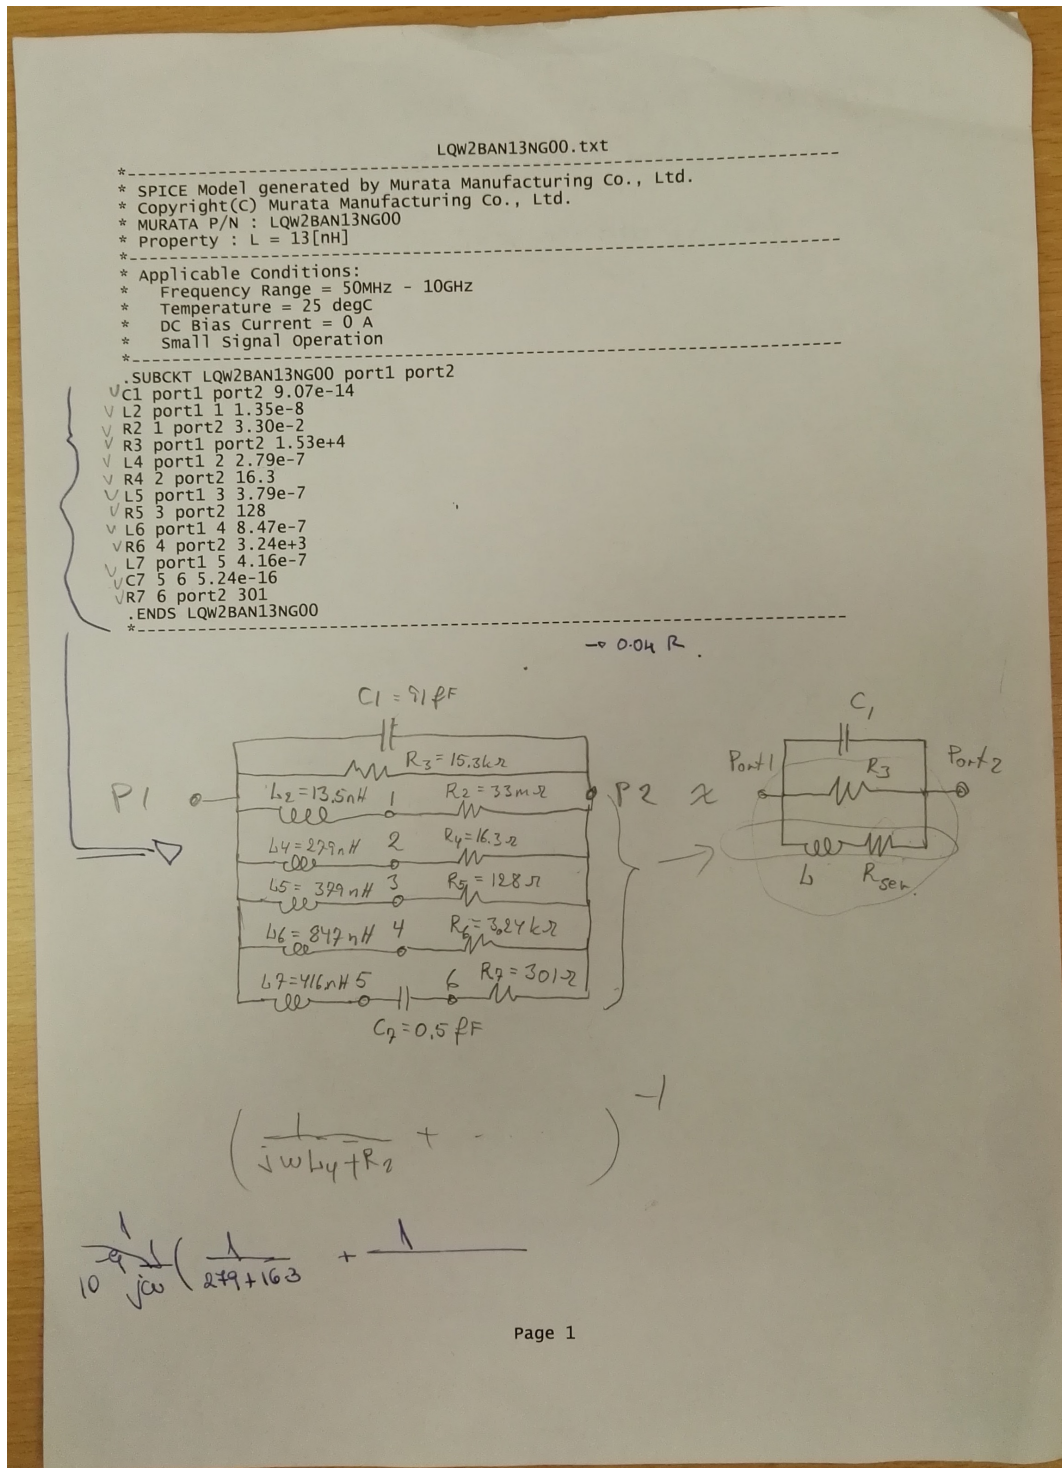 LQW2BAN13NG00.txt
*----------------------------------------------------------------
* SPICE Model generated by Murata Manufacturing Co., Ltd.
* Copyright(C) Murata Manufacturing Co., Ltd.
* MURATA P/N : LQW2BAN13NG00
* Property : L = 13[nH]
*----------------------------------------------------------------
* Applicable Conditions:
*   Frequency Range = 50MHz - 10GHz
*   Temperature = 25 degC
*   DC Bias Current = 0 A
*   Small Signal Operation
*----------------------------------------------------------------
.SUBCKT LQW2BAN13NG00 port1 port2
C1 port1 port2 9.07e-14
L2 port1 1 1.35e-8
R2 1 port2 3.30e-2
R3 port1 port2 1.53e+4
L4 port1 2 2.79e-7
R4 2 port2 16.3
L5 port1 3 3.79e-7
R5 3 port2 128
L6 port1 4 8.47e-7
R6 4 port2 3.24e+3
L7 port1 5 4.16e-7
C7 5 6 5.24e-16
R7 6 port2 301
.ENDS LQW2BAN13NG00
*----------------------------------------------------------------
→ 0.04 R.
C1 = 91fF
R3 = 15.3kΩ
L2 = 13.5nH 1 R2 = 33mΩ
P1
P2
L4 = 279nH 2 R4 = 16.3Ω
L5 = 379nH 3 R5 = 128Ω
L6 = 847nH 4 R6 = 3.24kΩ
L7 = 416nH 5 6 R7 = 301Ω
C7 = 0,5 fF
≈
C1
Port1 R3 Port2
L Rser.
( 1/(jωL4+R2) + . . . . )^-1
1/10^-9 1/jω ( 1/(279+163) + 1/
Page 1